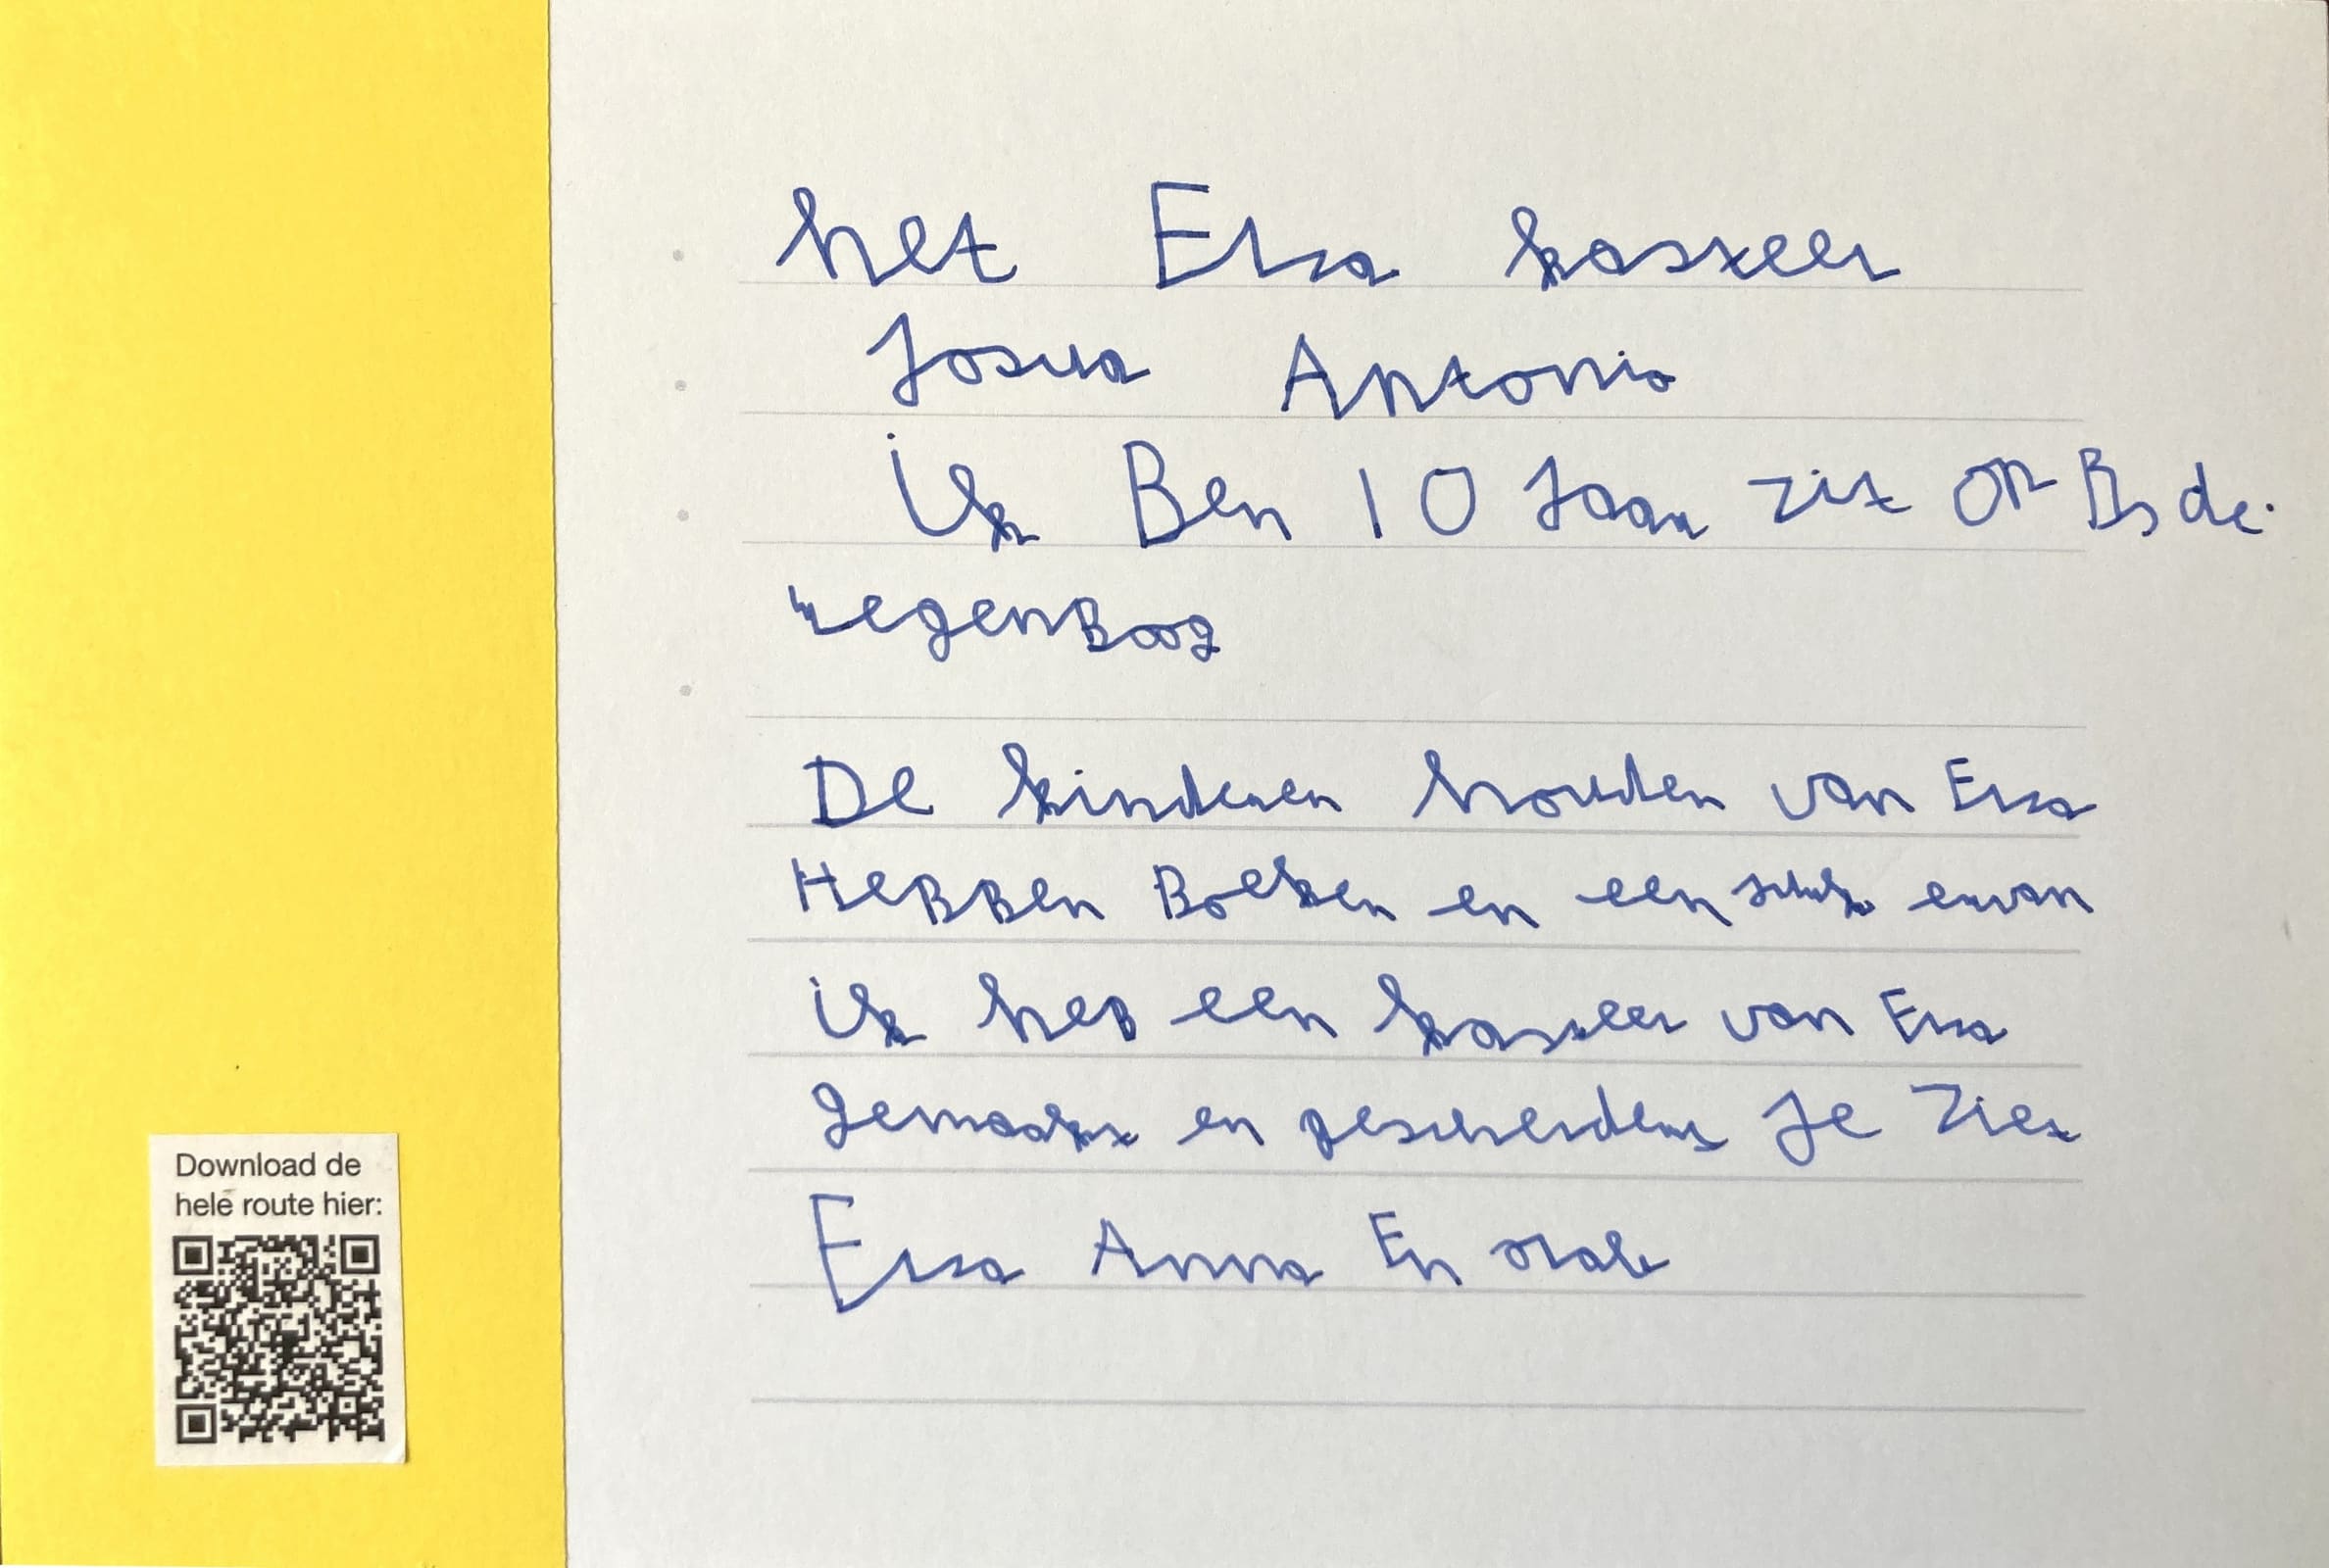 het Elsa kasteel
Josua Antonio
ik Ben 10 Jaar zit op Bs de
regenBoog
De kinderen houden van Elsa
HeBBen Boeken en een stuk ervan
ik heb een kasteel van Elsa
gemaakt en gescheldert Je Ziet
Elsa Anna En olaf
Download de
hele route hier: